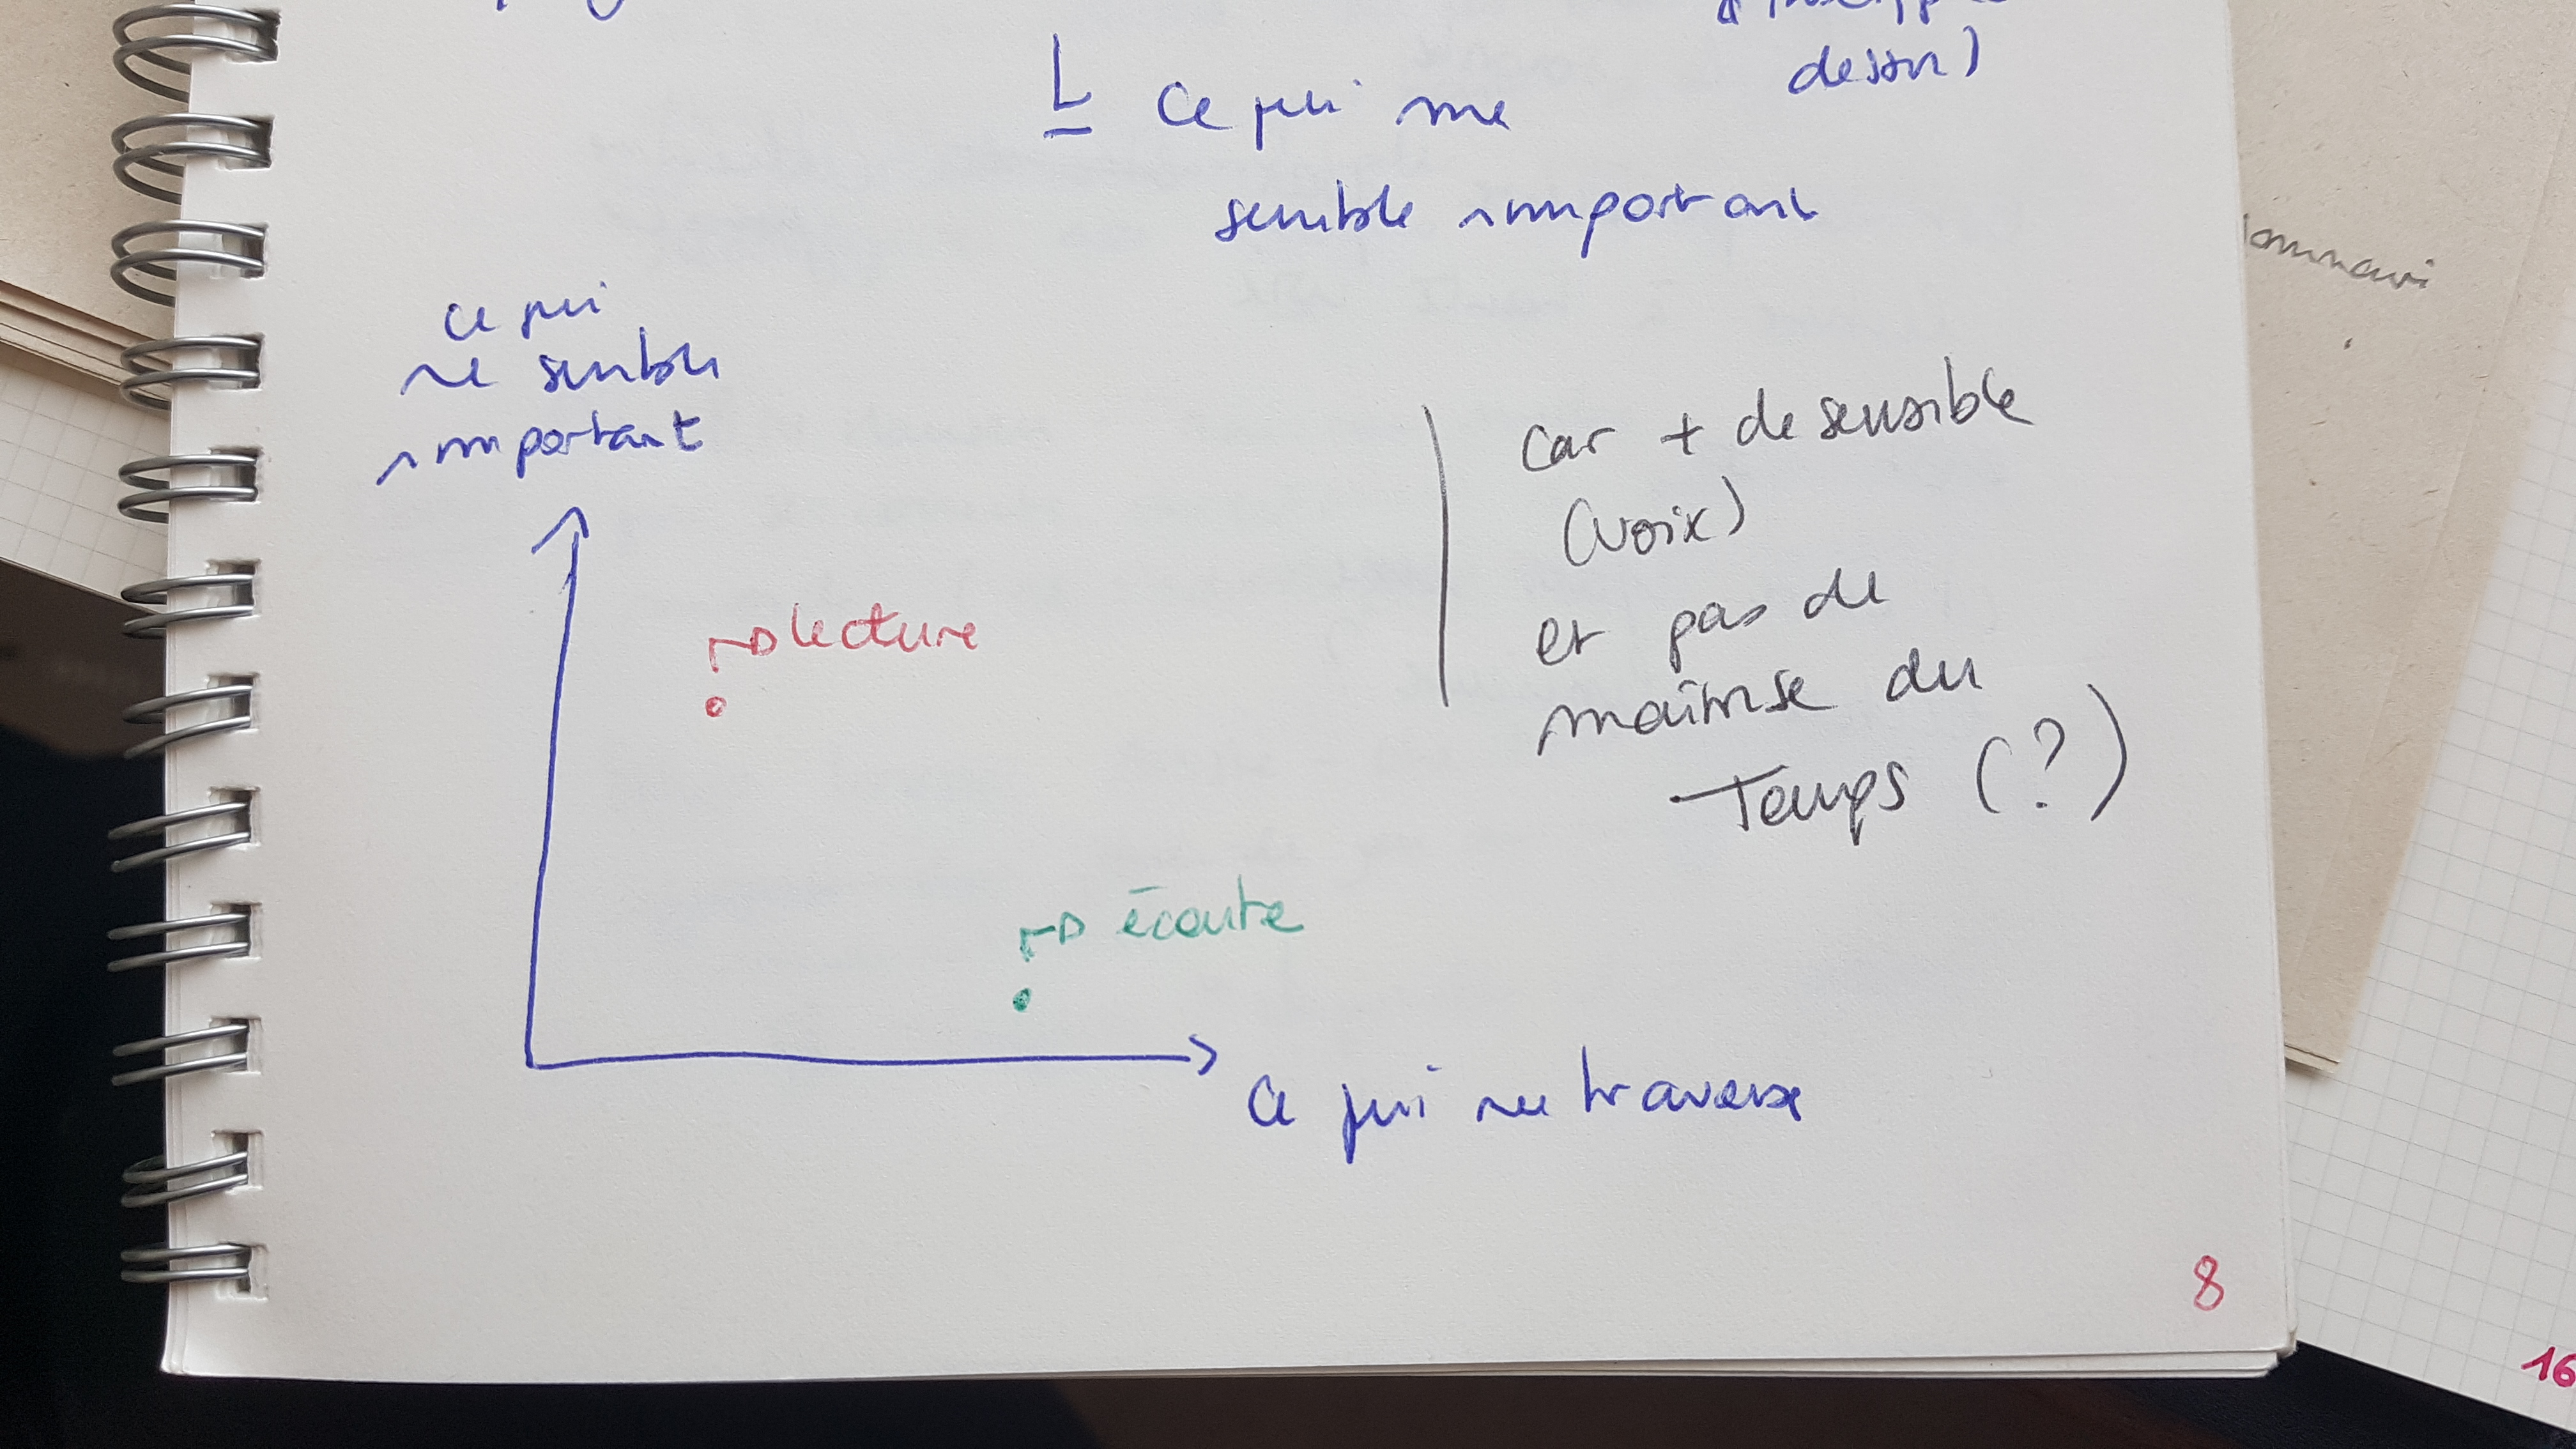 dessin)
L ce qui me
semble important
ce qui
me semble
important
car + de sensible
(voix)
et pas de
maîtrise du
Temps (?)
lecture
écoute
ce qui me traverse
8
16